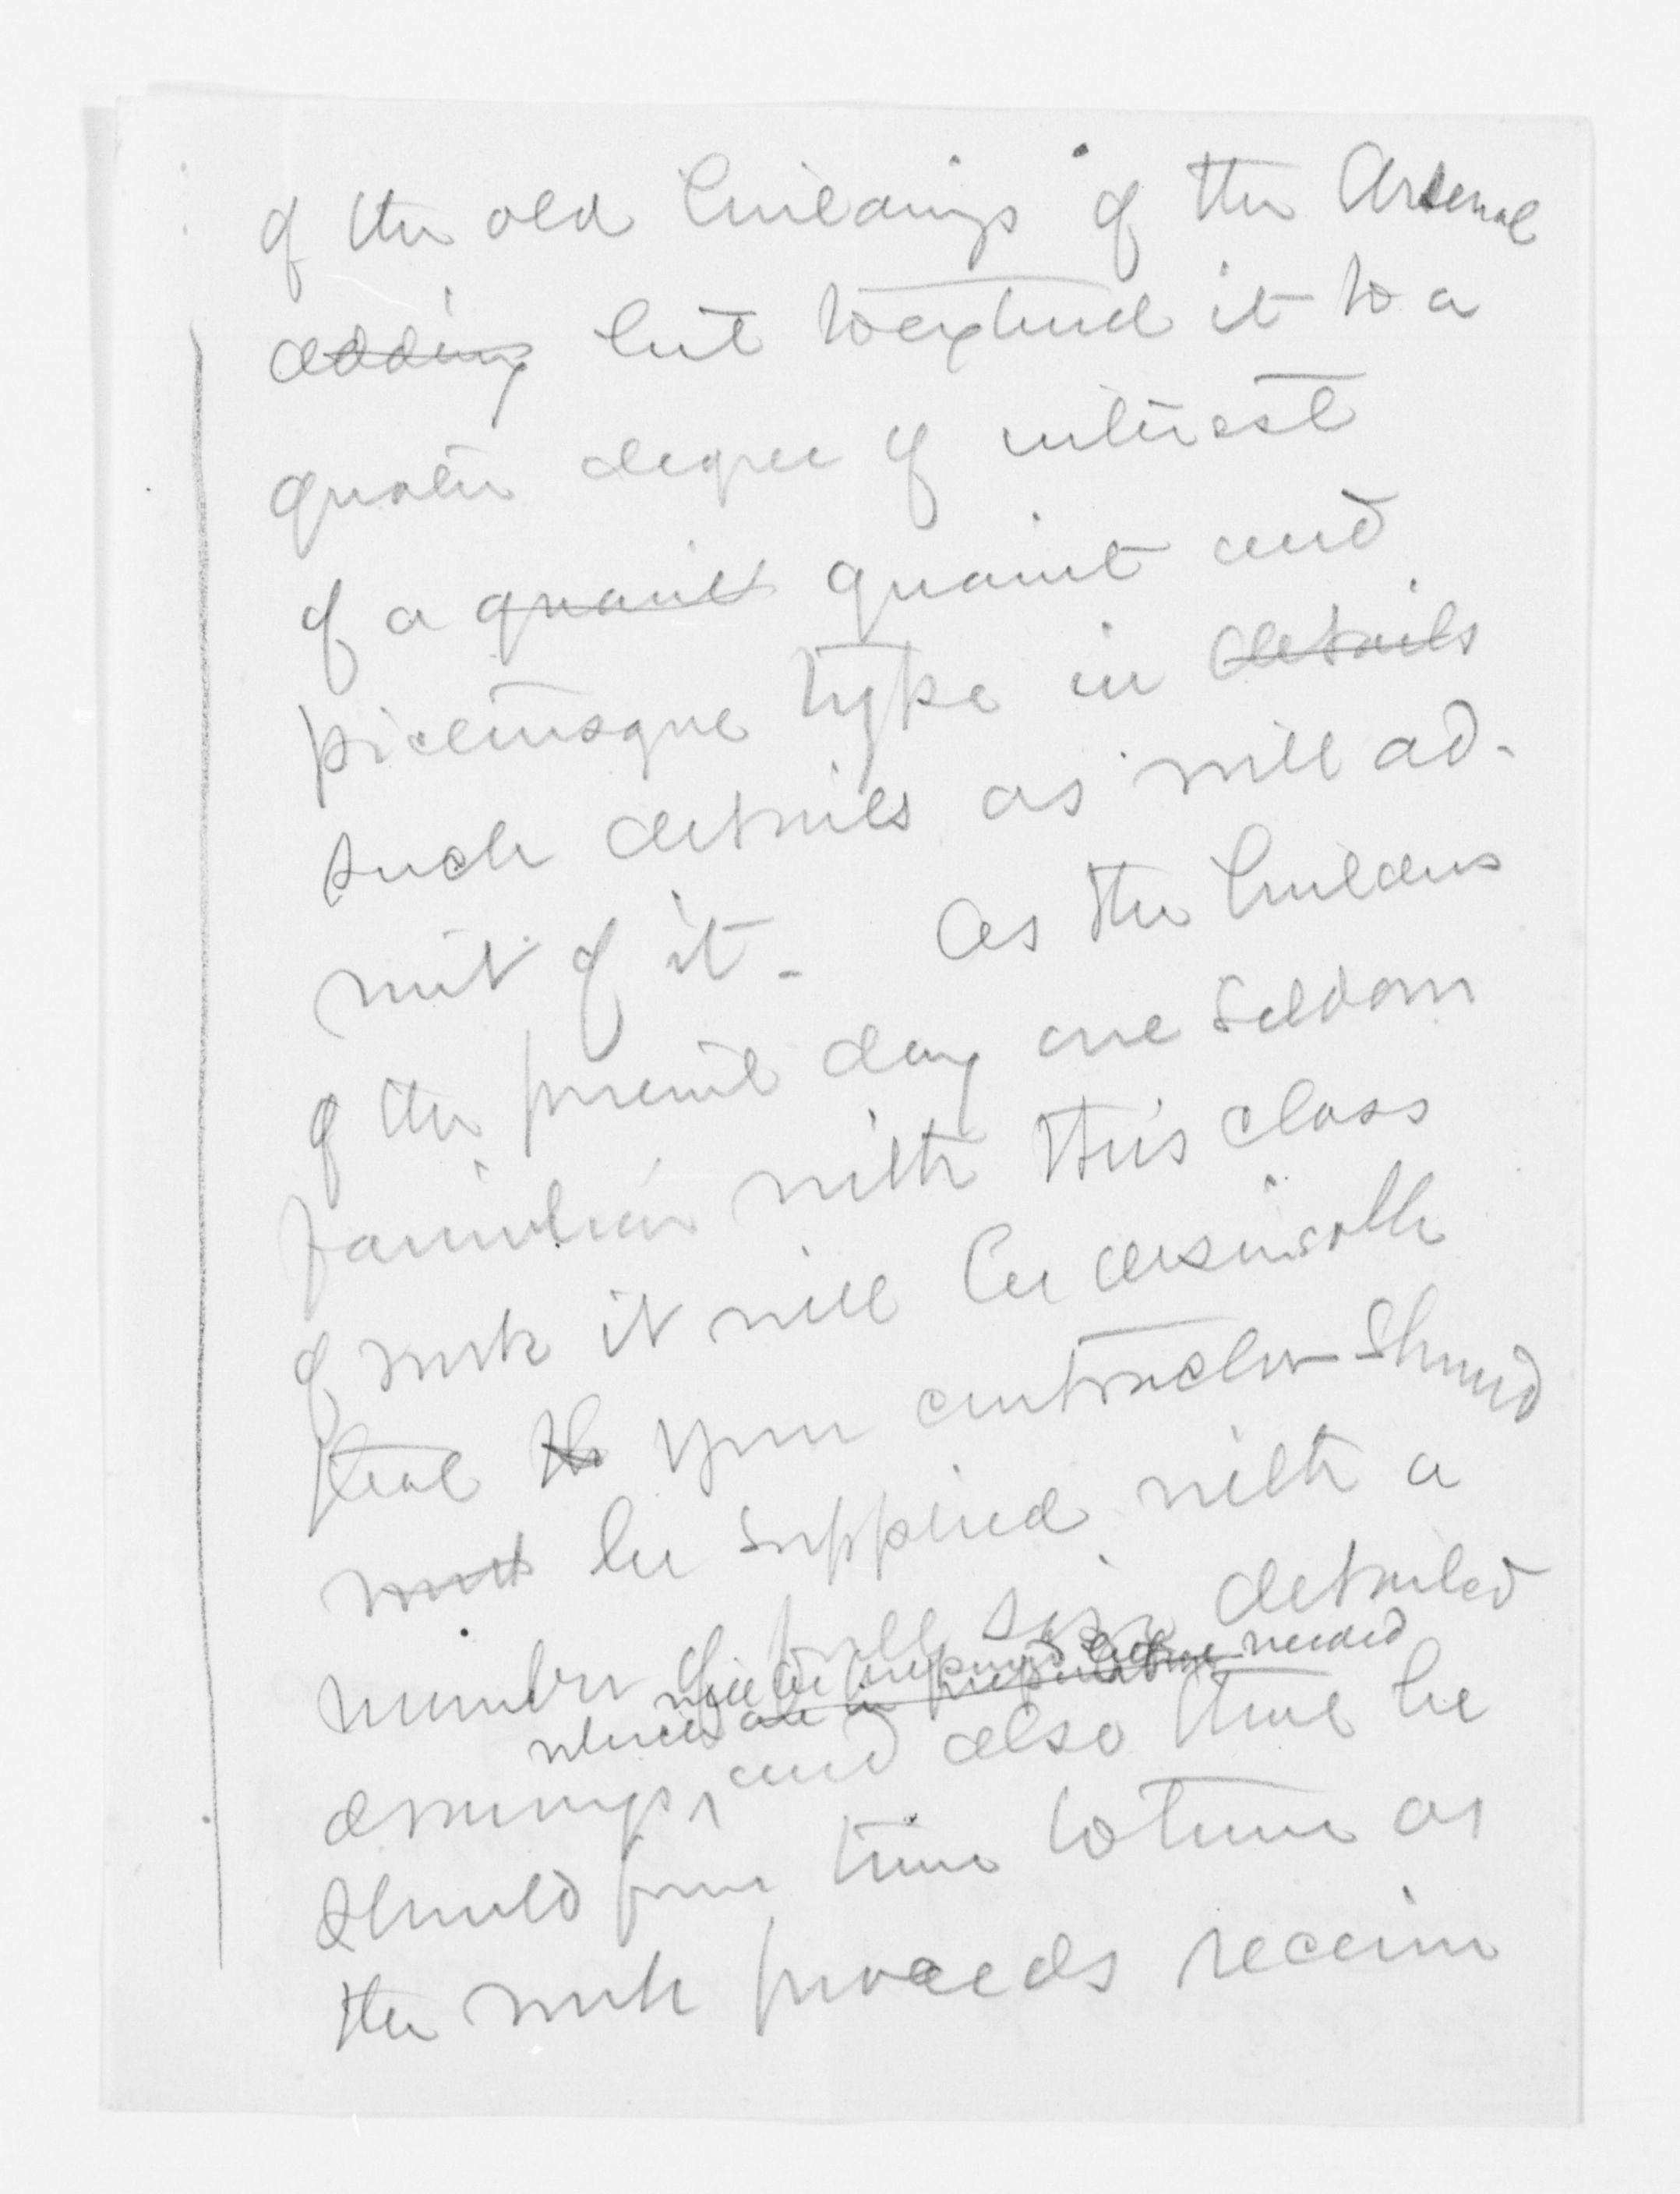 of the old buildings of the Arsenal
adding but to extend it to a
greater degree of interest
of a quaint quaint and
picturesque type in details
such details as will ad-
mit of it - As the builders
of the present day are seldom
familiar with this class
of work it will be desirable
that the your contractor should
must be supplied with a
number of full size detailed
will be prepared before needed
which are in preparation
drawings, and also that he
should from time to time as
the work proceeds receive